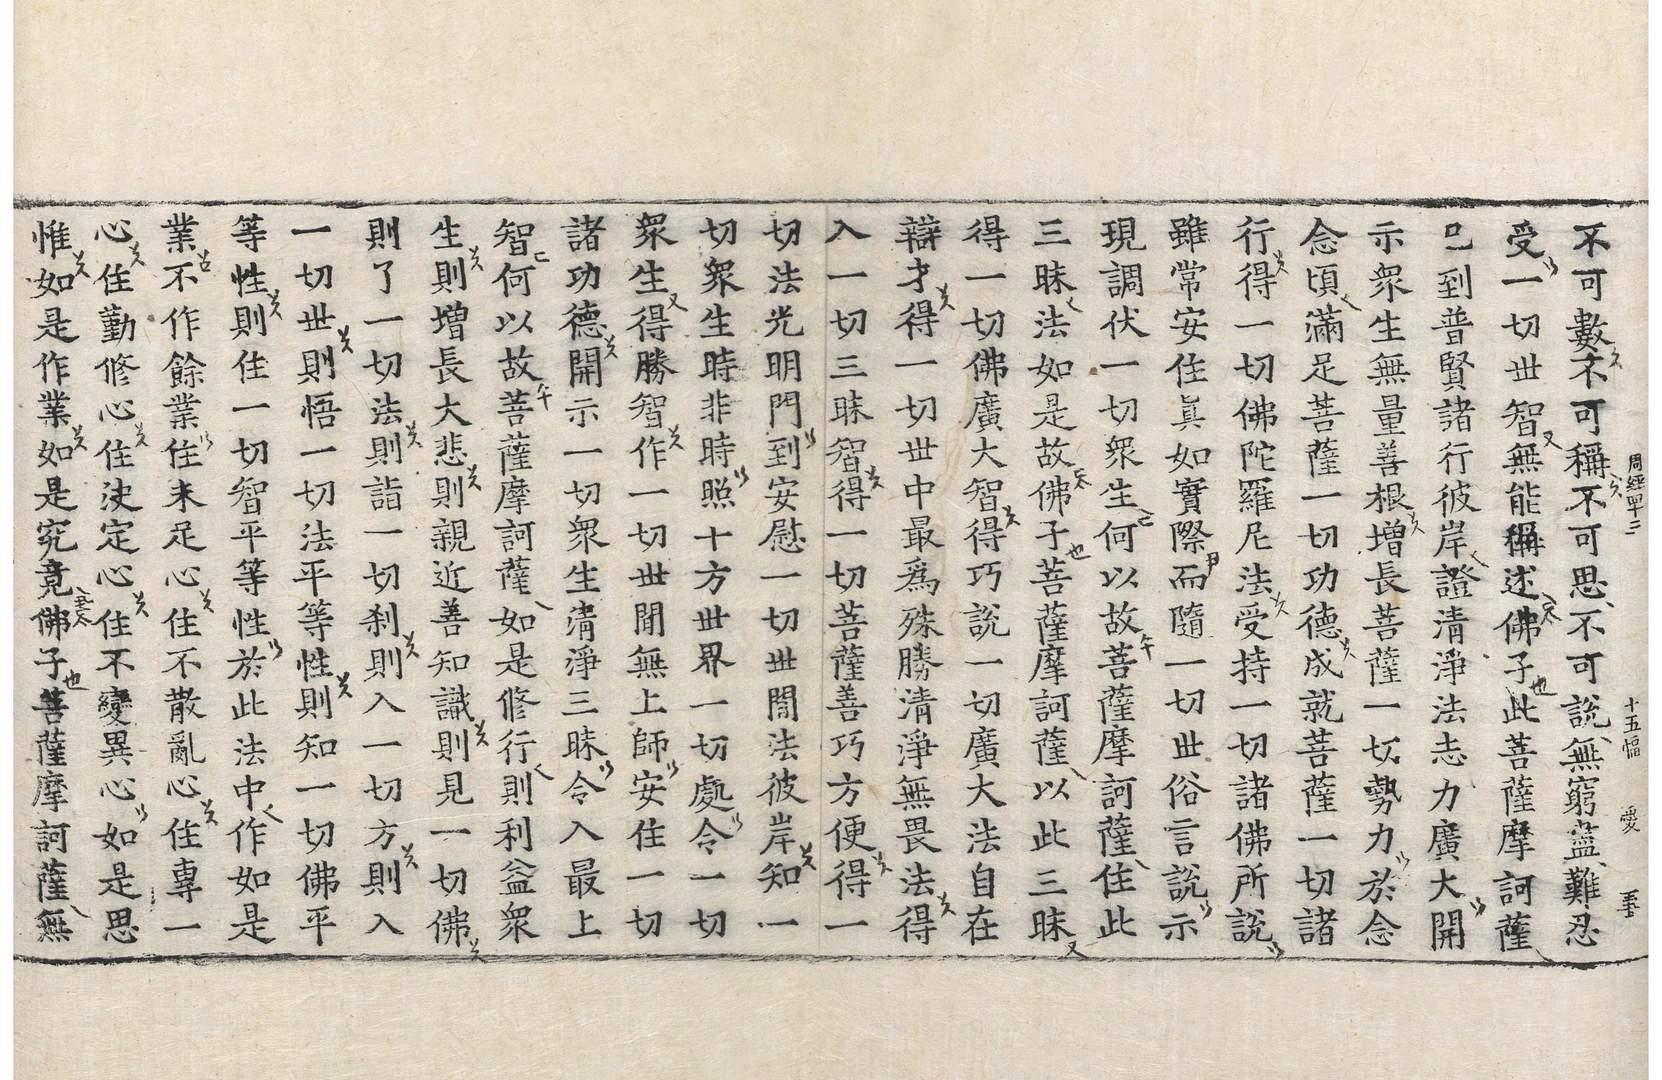 周經單三 十五幅 愛
不可數不可稱不可思不可說無窮盡難忍
受一切世智無能稱述佛子此菩薩摩訶薩
已到普賢諸行彼岸證清淨法志力廣大開
示衆生無量善根增長菩薩一切勢力於念
念頃滿足菩薩一切功德成就菩薩一切諸
行得一切佛陀羅尼法受持一切諸佛所說
雖常安住眞如實際而隨一切世俗言說示
現調伏一切衆生何以故菩薩摩訶薩住此
三昧法如是故佛子菩薩摩訶薩以此三昧
得一切佛廣大智得巧說一切廣大法自在
辯才得一切世中最爲殊勝清淨無畏法得
入一切三昧智得一切菩薩善巧方便得一
切法光明門到安慰一切世閒法彼岸知一
切衆生時非時照十方世界一切處令一切
衆生得勝智作一切世閒無上師安住一切
諸功德開示一切衆生淸淨三昧令入最上
智何以故菩薩摩訶薩如是修行則利益衆
生則增長大悲則親近善知識則見一切佛
則了一切法則詣一切刹則入一切方則入
一切世則悟一切法平等性則知一切佛平
等性則住一切智平等性於此法中作如是
業不作餘業住未足心住不散亂心住專一
心住勤修心住決定心住不變異心如是思
惟如是作業如是究竟佛子菩薩摩訶薩無